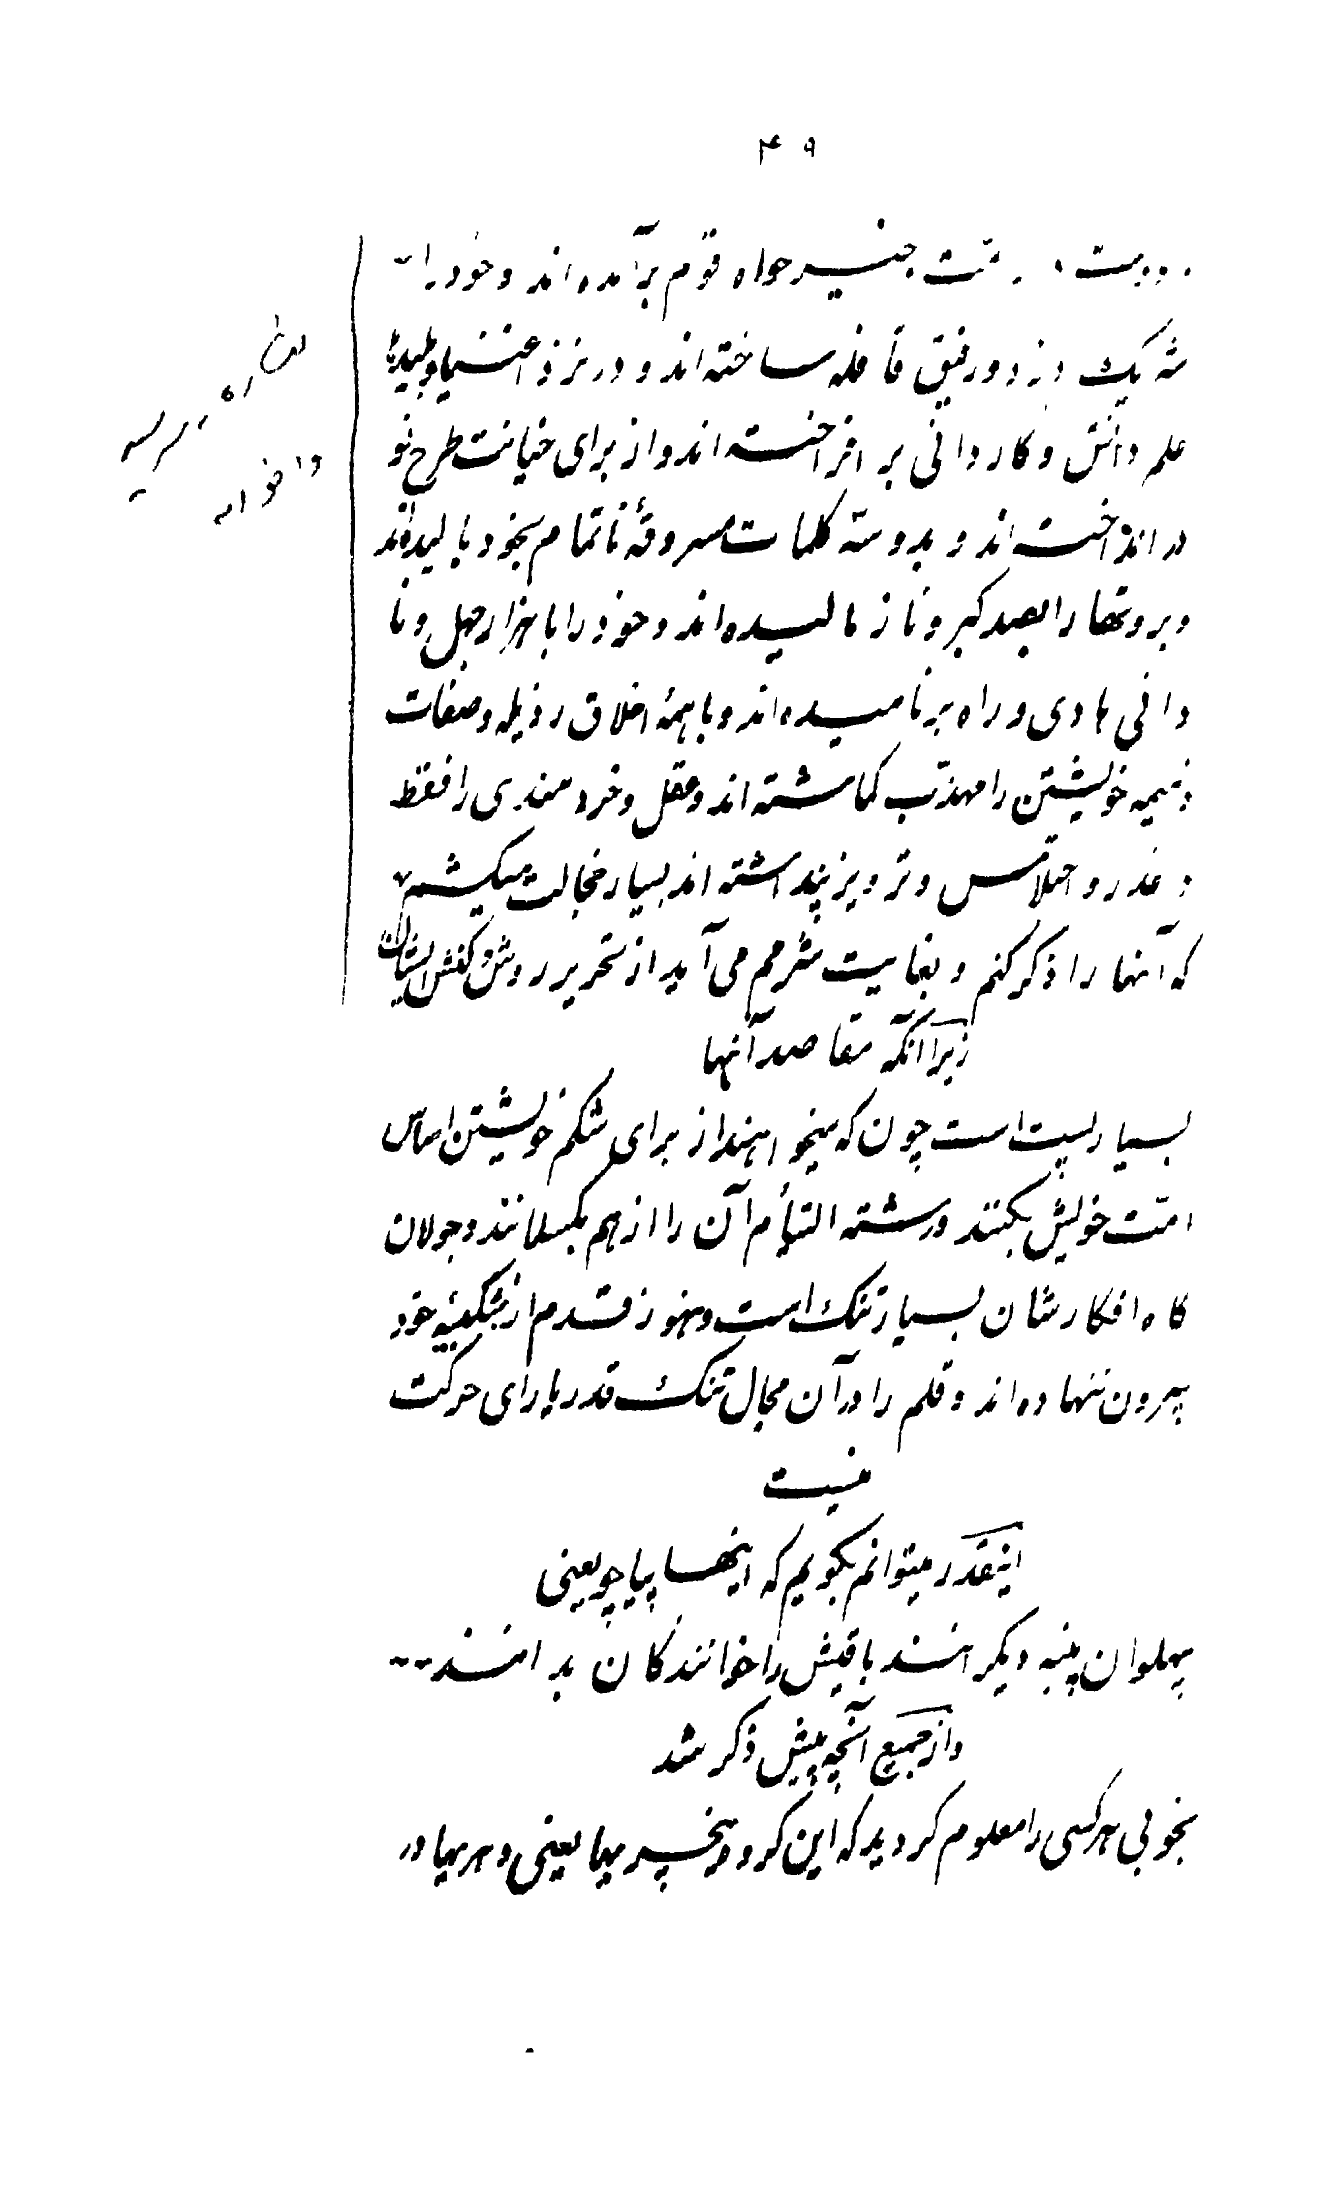 ۴۹
خیرخواه قوم برآمده اند و خود را
شریک دزد و رفیق قافله ساخته اند و در نزد اغنیا و
علم دانش و کاردانی بر افراخته اند و از برای خیانت طرح نو
در انداخته اند و بدو سه کلمات مسروقهٔ ناتمام بخود بالیده اند
و بروتها را بصد کبر و ناز مالیده اند و خود را با هزار جهل و نا
دانی هادی و راه بر نامیده اند و با همهٔ اخلاق رذیله و صفات
ذمیمه خویشتن را مهذب گماشته اند و عقل و خردمندی را فقط
غدر و اختلاس و تزویر پنداشته اند بسیار خجالت میکشم
که آنها را ذکر کنم و بغایت شرمم می آید از تحریر روش و کنش ایشان
زیرا آنکه مقاصد آنها
بسیار پست است چون که میخواهند از برای شکم خویشتن اساس
امت خویش بکنند و رشته التیام آن را از هم بگسلانند و جولان
گاه افکار شان بسیار تنگ است و هنوز قدم از شکنبه خود
بیرون ننهاده اند و قلم را در آن مجال تنگ قدر یارای حرکت
نیست
اینقدر میتوانم بگویم که اینها پیاچو یعنی
پهلوان پنبه دیگر اند باقیش را خوانندگان بدانند --
و از جمیع آنچه پیش ذکر شد
بخوبی هر کسی را معلوم گردید که این گروه نیچریها یعنی دهریها در